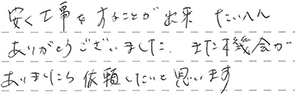 安く工事をすることが出来 たいへん
ありがとうございました。また機会が
ありましたら依頼したいと思います